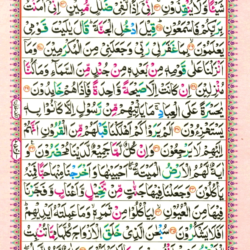 شَيْئًا وَّلَا يُنْقِذُوْنِ اِنِّيْٓ اِذًا لَّفِيْ ضَلٰلٍ مُّبِيْنٍ اِنِّيْٓ اٰمَنْتُ
بِرَبِّكُمْ فَاسْمَعُوْنِ قِيْلَ ادْخُلِ الْجَنَّةَ قَالَ يٰلَيْتَ قَوْمِيْ
يَعْلَمُوْنَ بِمَا غَفَرَ لِيْ رَبِّيْ وَجَعَلَنِيْ مِنَ الْمُكْرَمِيْنَ وَمَآ
اَنْزَلْنَا عَلٰى قَوْمِهٖ مِنْۢ بَعْدِهٖ مِنْ جُنْدٍ مِّنَ السَّمَآءِ وَمَا كُنَّا
مُنْزِلِيْنَ اِنْ كَانَتْ اِلَّا صَيْحَةً وَّاحِدَةً فَاِذَا هُمْ خٰمِدُوْنَ
يٰحَسْرَةً عَلَى الْعِبَادِ مَا يَاْتِيْهِمْ مِّنْ رَّسُوْلٍ اِلَّا كَانُوْا بِهٖ
يَسْتَهْزِءُوْنَ اَلَمْ يَرَوْا كَمْ اَهْلَكْنَا قَبْلَهُمْ مِّنَ الْقُرُوْنِ اَنَّهُمْ
اِلَيْهِمْ لَا يَرْجِعُوْنَ وَاِنْ كُلٌّ لَّمَّا جَمِيْعٌ لَّدَيْنَا مُحْضَرُوْنَ وَ
اٰيَةٌ لَّهُمُ الْاَرْضُ الْمَيْتَةُ اَحْيَيْنٰهَا وَاَخْرَجْنَا مِنْهَا حَبًّا فَمِنْهُ
يَاْكُلُوْنَ وَجَعَلْنَا فِيْهَا جَنّٰتٍ مِّنْ نَّخِيْلٍ وَّاَعْنَابٍ وَّفَجَّرْنَا
فِيْهَا مِنَ الْعُيُوْنِ لِيَاْكُلُوْا مِنْ ثَمَرِهٖ وَمَا عَمِلَتْهُ اَيْدِيْهِمْ
اَفَلَا يَشْكُرُوْنَ سُبْحٰنَ الَّذِيْ خَلَقَ الْاَزْوَاجَ كُلَّهَا مِمَّا